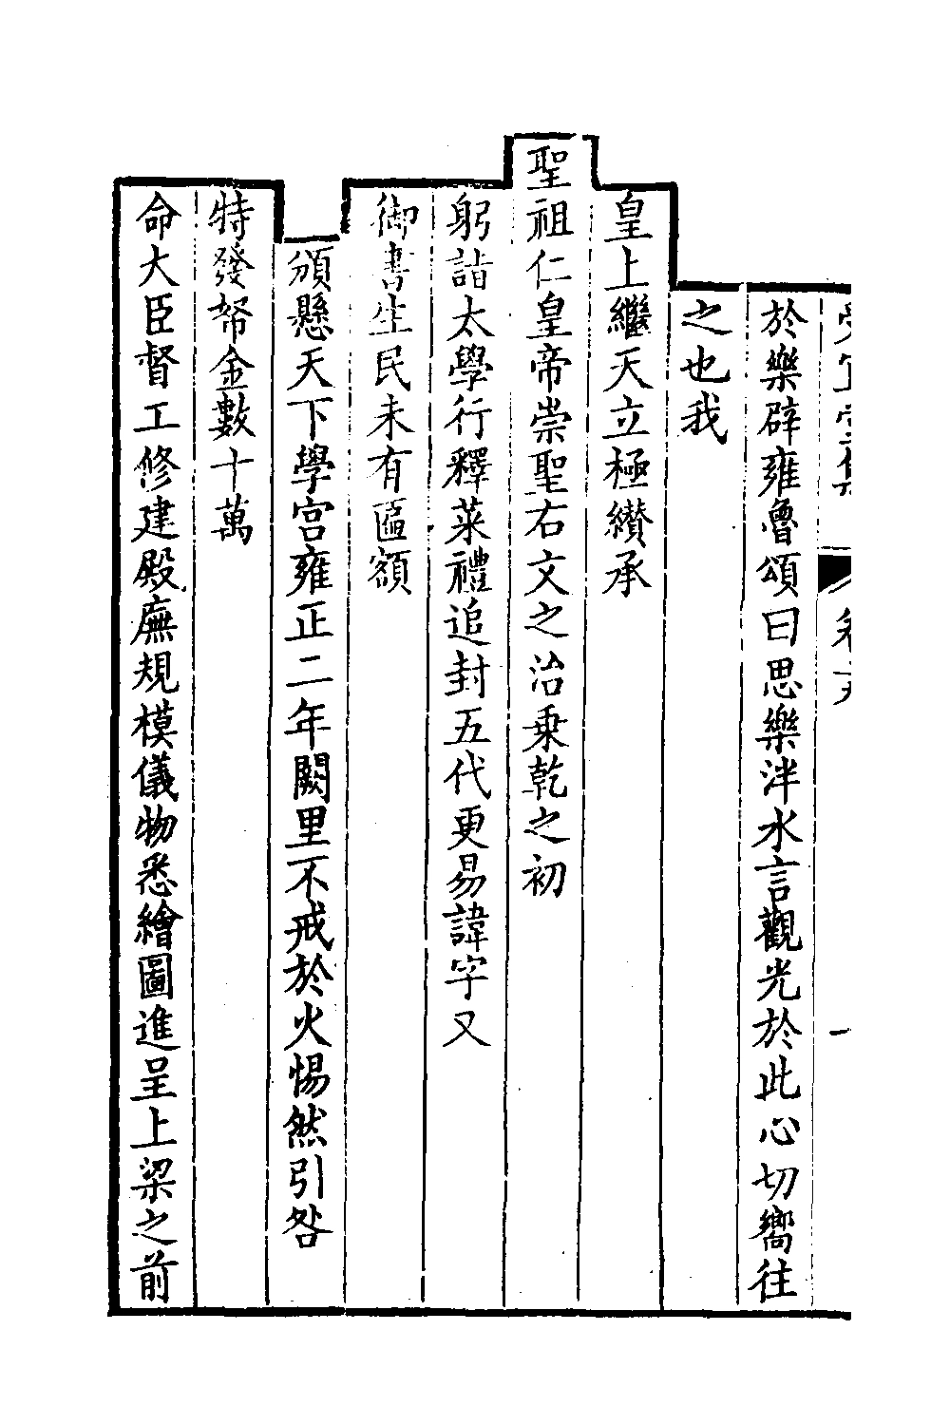 受宜堂集
於樂辟雍魯頌曰思樂泮水言觀光於此心切嚮往
之也我
皇上繼天立極纉承
聖祖仁皇帝崇聖右文之治乗乾之初
躬詣太學行釋菜禮追封五代更易諱字又
御書生民未有匾額
頒懸天下學宫雍正二年闕里不戒於火惕然引咎
特發帑金數十萬
命大臣督工修建殿廡規模儀物悉繪圖進呈上梁之前